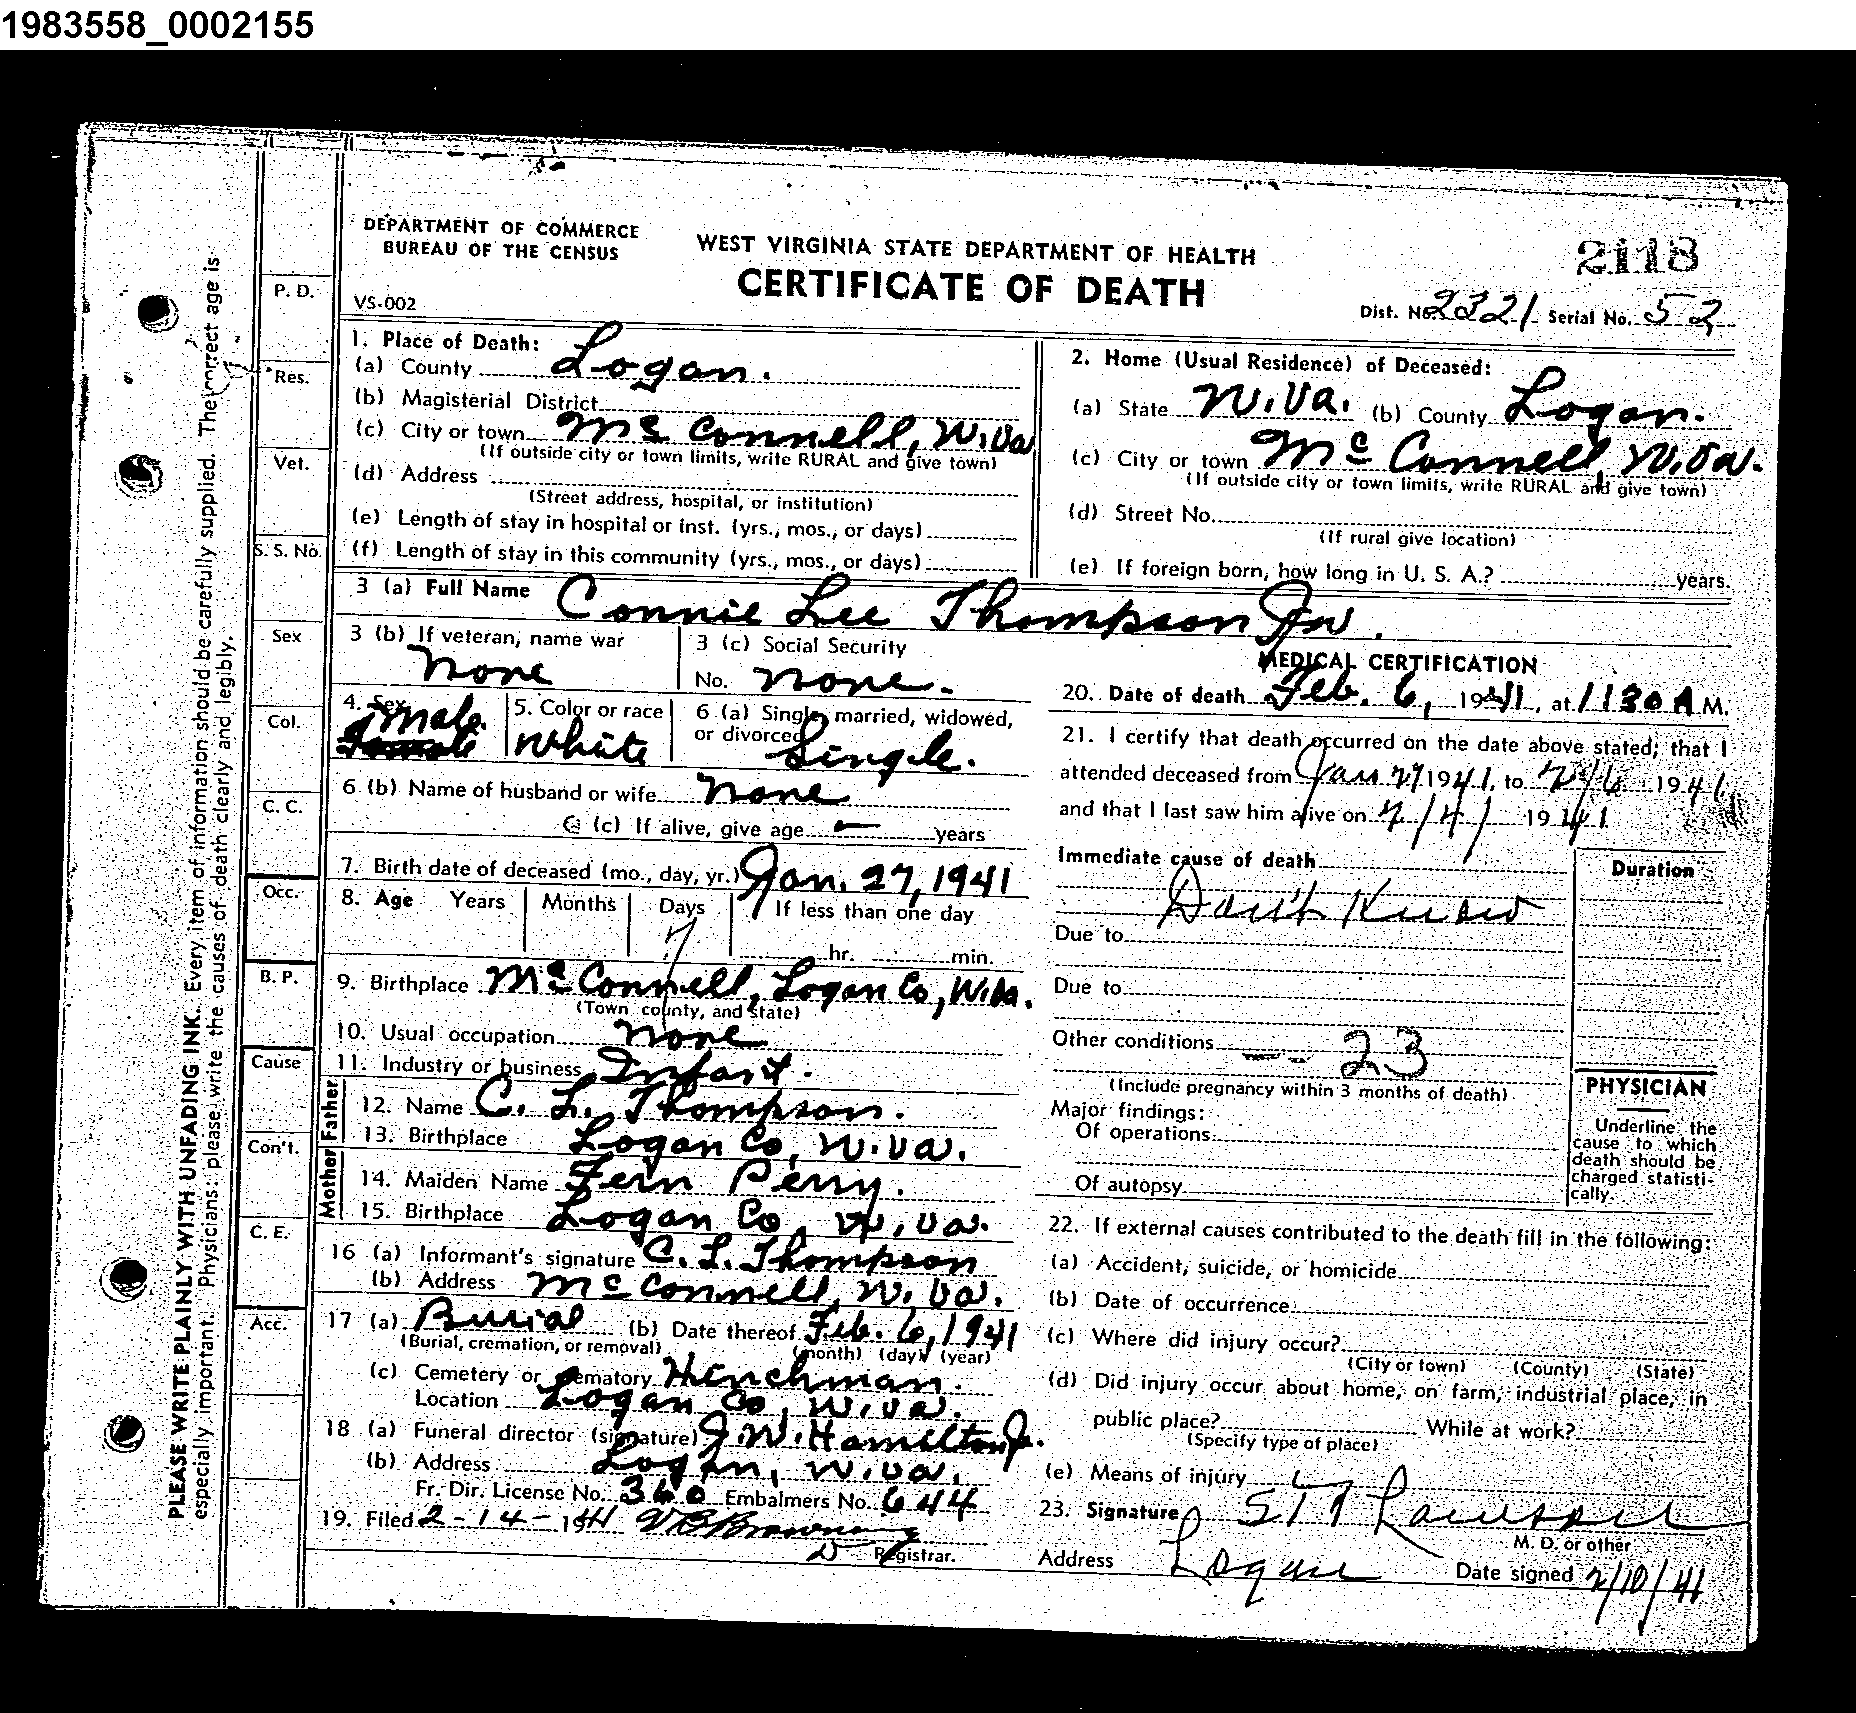 1983558_0002155
DEPARTMENT OF COMMERCE
BUREAU OF THE CENSUS
VS-002
WEST VIRGINIA STATE DEPARTMENT OF HEALTH
CERTIFICATE OF DEATH
2118
Dist. No. 2321 Serial No. 52
PLEASE WRITE PLAINLY WITH UNFADING INK. Every item of information should be carefully supplied. The correct age is
especially important. Physicians: please write the causes of death clearly and legibly.
P. D.
Res.
Vet.
S. S. No.
Sex
Col.
C. C.
Occ.
B. P.
Cause
Con't.
C. E.
Acc.
1. Place of Death:
(a) County Logan.
(b) Magisterial District
(c) City or town Mc Connell, W. Va
(If outside city or town limits, write RURAL and give town)
(d) Address
(Street address, hospital, or institution)
(e) Length of stay in hospital or inst. (yrs., mos., or days)
(f) Length of stay in this community (yrs., mos., or days)
2. Home (Usual Residence) of Deceased:
(a) State W. Va. (b) County Logan.
(c) City or town Mc Connell, W. Va.
(If outside city or town limits, write RURAL and give town)
(d) Street No.
(If rural give location)
(e) If foreign born, how long in U. S. A.? years.
3 (a) Full Name Connie Lee Thompson Jr.
3 (b) If veteran, name war
None
3 (c) Social Security
No. None.
4. Sex
Male.
Female
5. Color or race
White
6 (a) Single, married, widowed,
or divorced
Single.
6 (b) Name of husband or wife None
6 (c) If alive, give age - years
7. Birth date of deceased (mo., day, yr.) Jan. 27, 1941
8. Age Years Months Days If less than one day
hr. min.
9. Birthplace McConnell, Logan Co, W. Va.
(Town county, and state)
10. Usual occupation None
11. Industry or business Infant.
Father
12. Name C. L. Thompson.
13. Birthplace Logan Co, W. Va.
Mother
14. Maiden Name Fern Perry.
15. Birthplace Logan Co, W. Va.
16 (a) Informant's signature C. L. Thompson
(b) Address Mc Connell, W. Va.
17 (a) Burial (b) Date thereof Feb. 6, 1941
(Burial, cremation, or removal) (month) (day) (year)
(c) Cemetery or crematory Hinchman.
Location Logan Co, W. Va.
18 (a) Funeral director (signature) J. W. Hamilton Jr.
(b) Address Logan, W. Va.
Fr. Dir. License No. 360 Embalmers No. 644
19. Filed 2-14-1941
Registrar.
MEDICAL CERTIFICATION
20. Date of death Feb. 6, 1941, at 1130 A M.
21. I certify that death occurred on the date above stated; that I
attended deceased from Jan 27 1941, to 2/6 1941
and that I last saw him alive on 2/4/ 1941
Immediate cause of death
Don't Know
Duration
Due to
Due to
Other conditions 23
(Include pregnancy within 3 months of death)
Major findings:
Of operations
Of autopsy
PHYSICIAN
Underline the
cause to which
death should be
charged statisti-
cally.
22. If external causes contributed to the death fill in the following:
(a) Accident, suicide, or homicide
(b) Date of occurrence
(c) Where did injury occur?
(City or town) (County) (State)
(d) Did injury occur about home, on farm, industrial place, in
public place? While at work?
(Specify type of place)
(e) Means of injury
23. Signature
M. D. or other
Address Logan Date signed 2/10/41